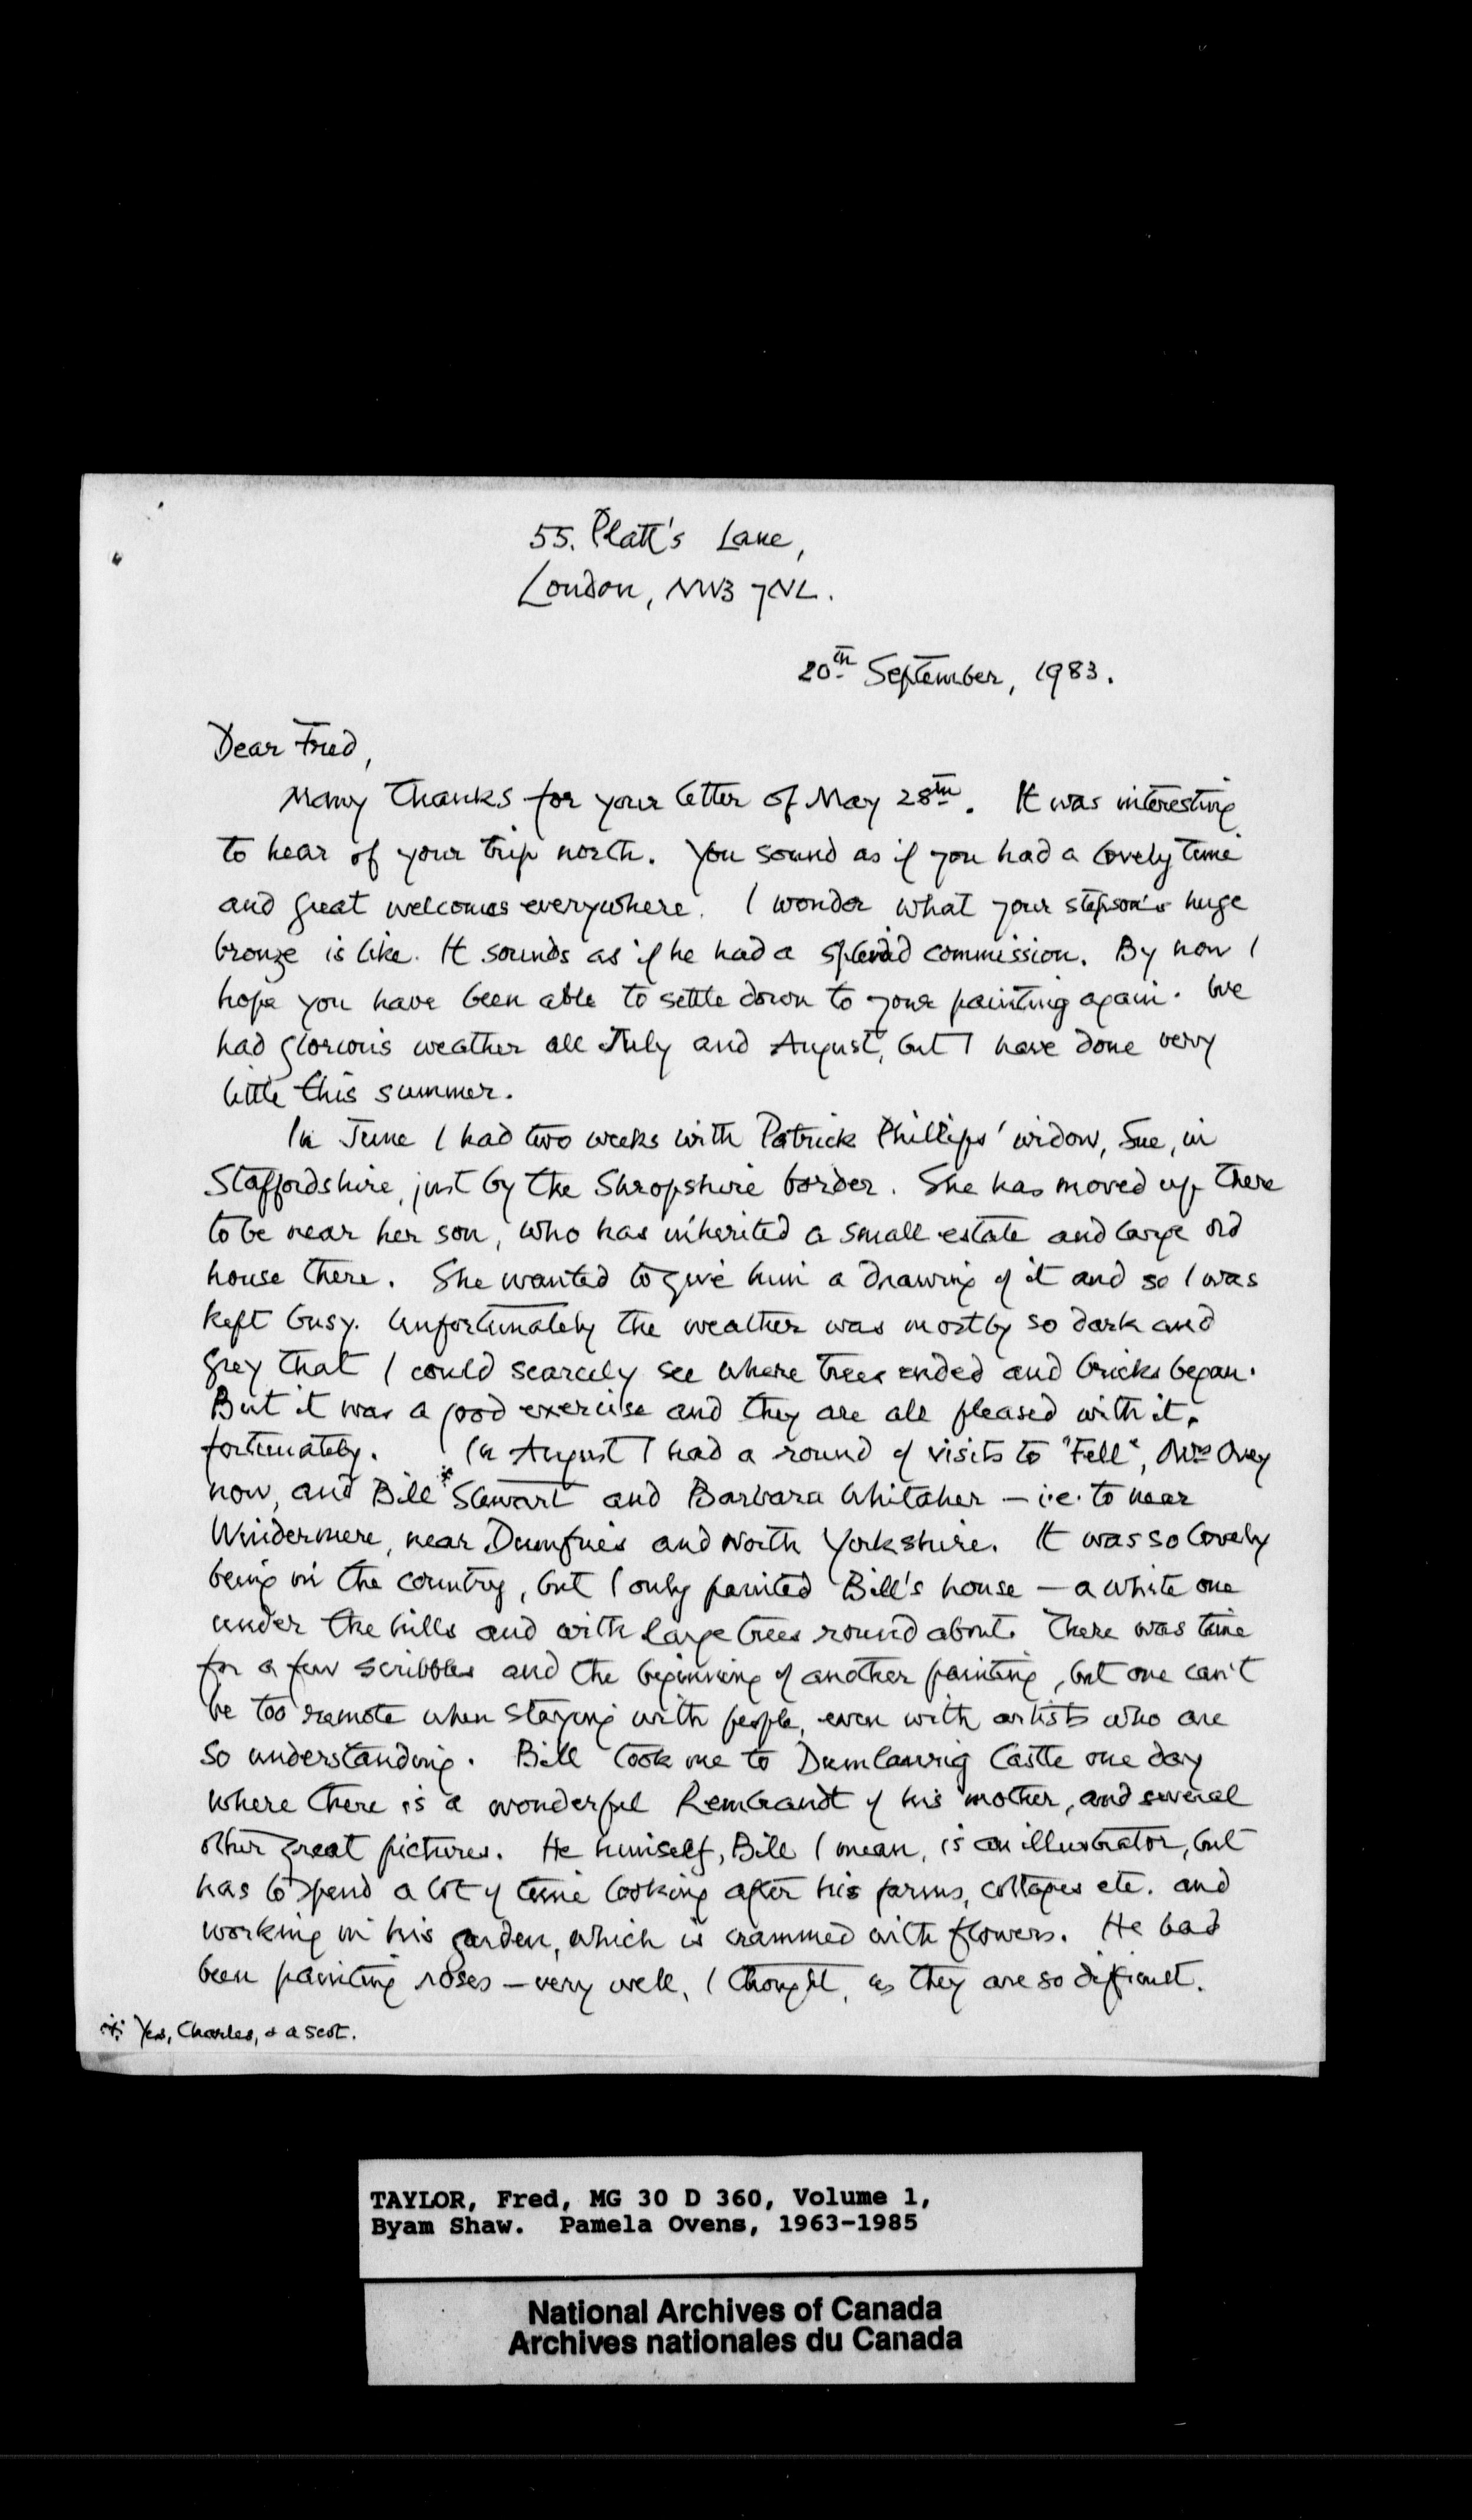 55. Platt's Lane,
London, NW3 7NL.
20th September, 1983.
Dear Fred,
Many thanks for your letter of May 28th. It was interesting
to hear of your trip north. You sound as if you had a lovely time
and great welcomes everywhere. I wonder what your stepson's huge
bronze is like. It sounds as if he had a splendid commission. By now I
hope you have been able to settle down to your painting again. We
had glorious weather all July and August, but I have done very
little this summer.
In June I had two weeks with Patrick Phillips' widow, Sue, in
Staffordshire, just by the Shropshire border. She has moved up there
to be near her son, who has inherited a small estate and large old
house there. She wanted to give him a drawing of it and so I was
kept busy. Unfortunately the weather was mostly so dark and
grey that I could scarcely see where trees ended and bricks began.
But it was a good exercise and they are all pleased with it,
fortunately. In August I had a round of visits to "Fell", Mrs Ovey
now, and Bill * Stewart and Barbara Whitaker – i.e. to near
Windermere, near Dumfries and North Yorkshire. It was so lovely
being in the country, but I only painted Bill's house – a white one
under the hills and with large trees round about. There was time
for a few scribbles and the beginning of another painting, but one can't
be too remote when staying with people, even with artists who are
so understanding. Bill took me to Drumlanrig Castle one day
where there is a wonderful Rembrandt of his mother, and several
other great pictures. He himself, Bill I mean, is an illustrator, but
has to spend a lot of time looking after his farms, cottages etc. and
working in his garden, which is crammed with flowers. He had
been painting roses – very well, I thought, as they are so difficult.
* Yes, Charles, & a Scot.
TAYLOR, Fred, MG 30 D 360, Volume 1,
Byam Shaw. Pamela Ovens, 1963-1985
National Archives of Canada
Archives nationales du Canada